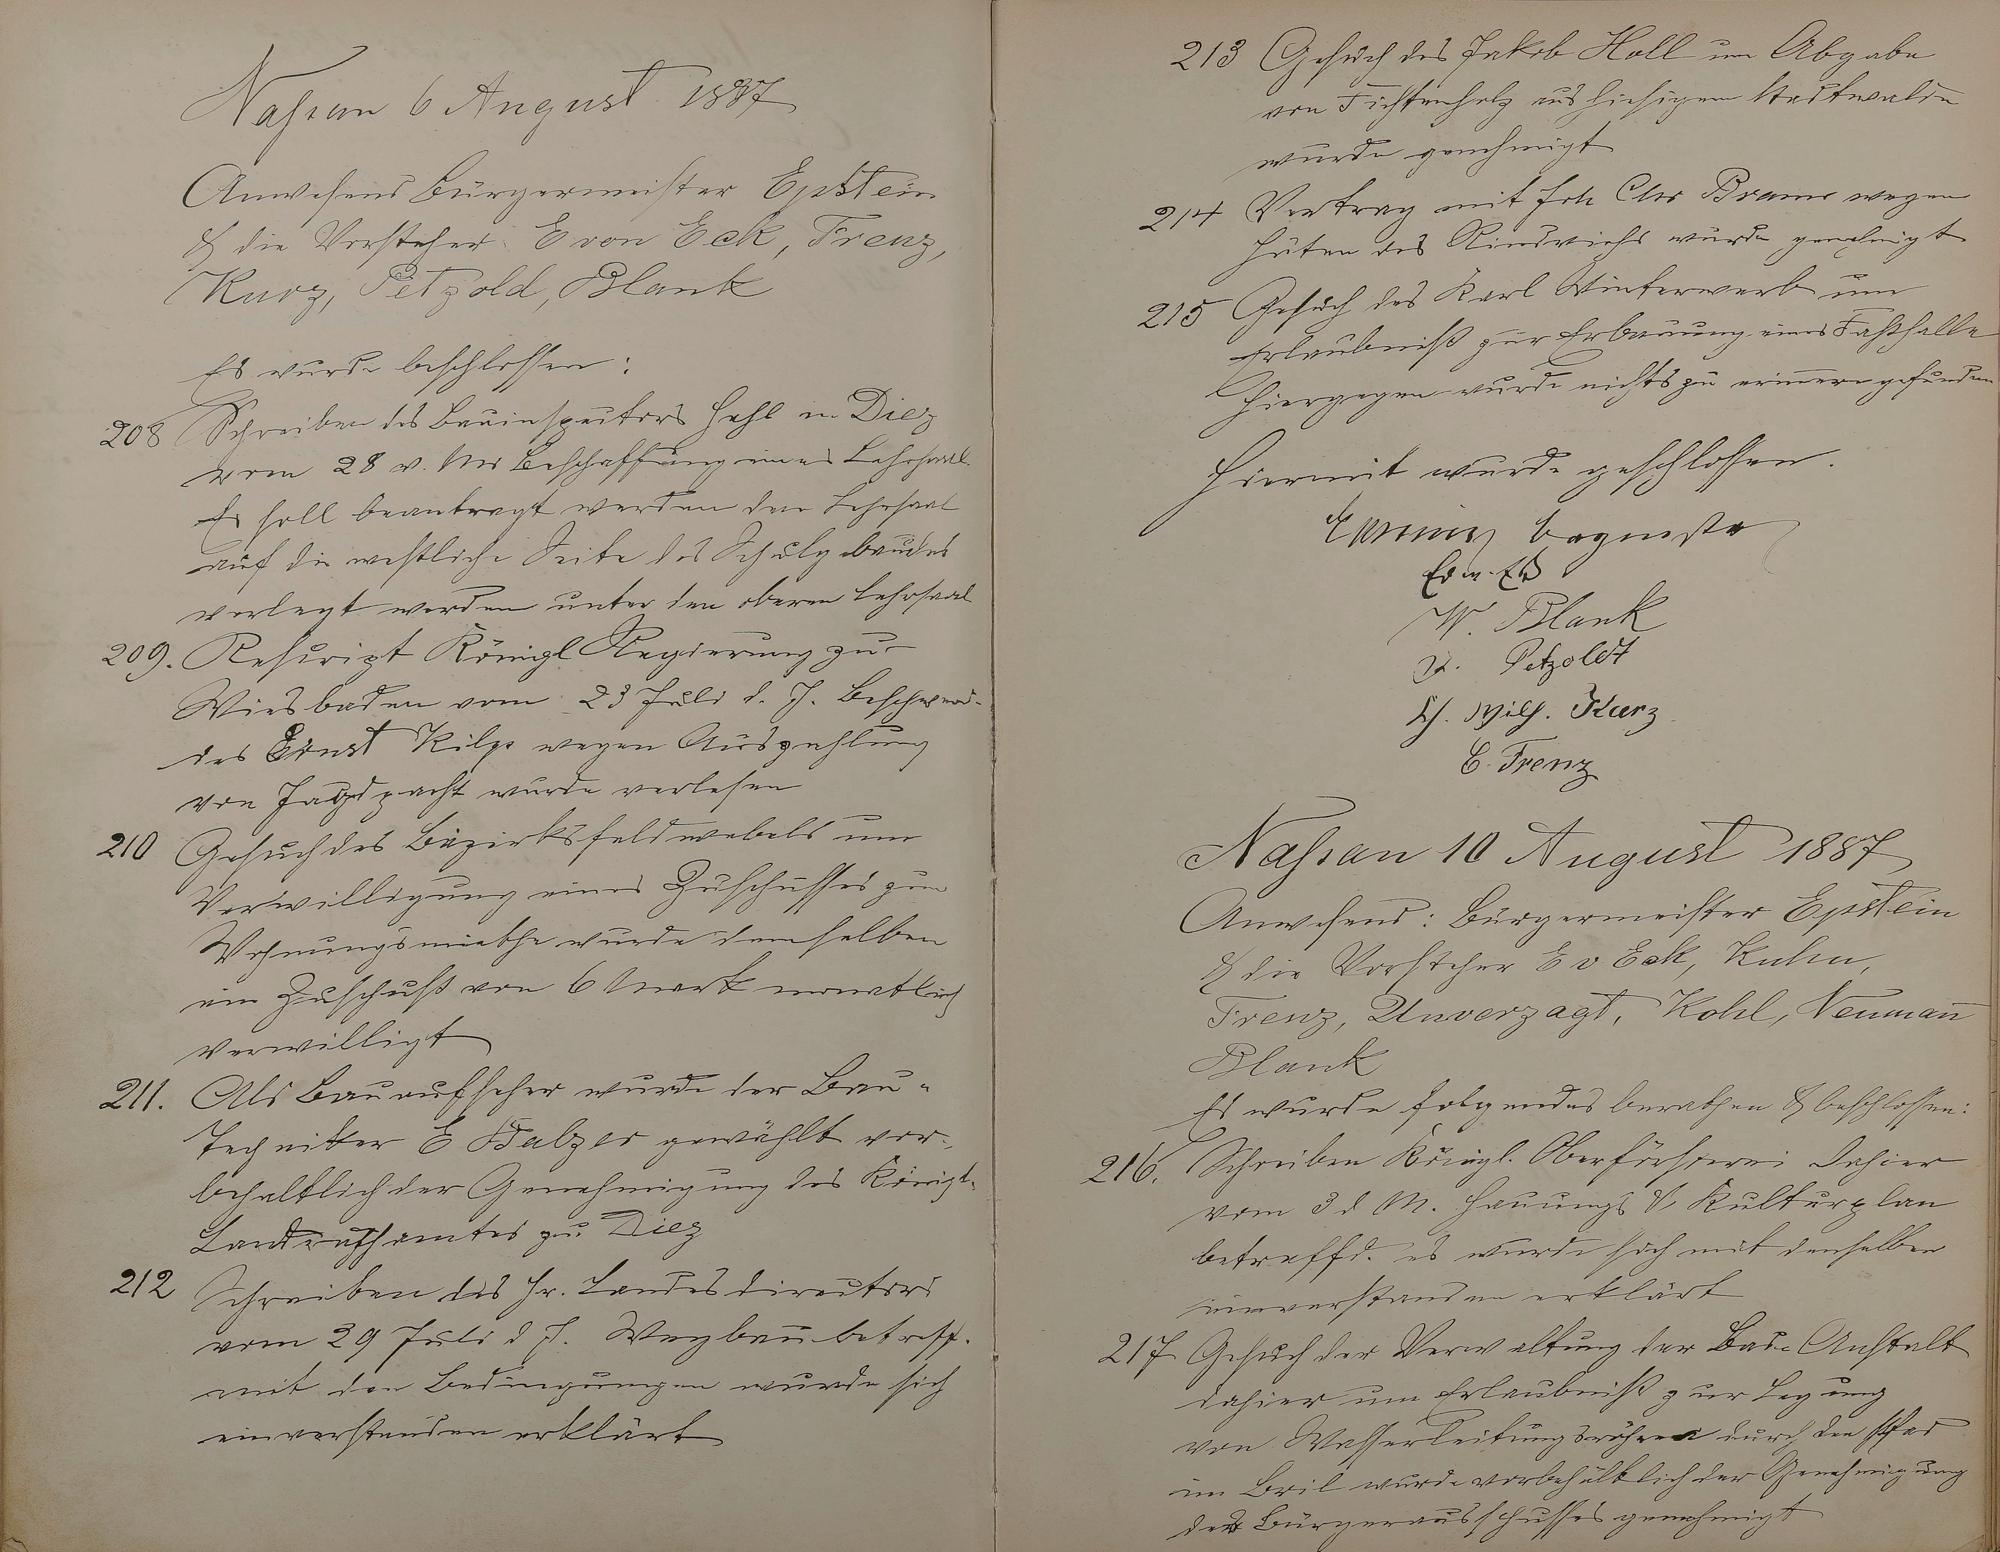 Nassau 6 August 1887
Anwesend Bürgermeister Epstein
& die Vorsteher E von Eck, Frenz,
Kurz, Petzold, Blank
Es wurde beschlossen:
208 Schreiben des Bauinspectors Hehl in Diez
vom 28 v. Mts Beschaffung eines Lehrsaal
Es soll beantragt werden den Lehrsaal
auf die westliche Seite des Schulgebäudes
verlegt werden unter den oberen Lehrsaal
209. Rescript Königl Regierung zu
Wiesbaden vom 23 Juli d. J. Beschwerd-
des Ernst Kilp wegen Auszahlung
von Jagdpacht wurde verlesen
210 Gesuch des Bezirksfeldwebels um
Verwilligung eines Zuschusses zum
Wohnungsmiethe wurde demselben
ein Zuschuß von 6 Mark monatlich
verwilligt
211. Als Bauaufseher wurde der Bau-
Techniker E Balzer gewählt vor-
behaltlich der Genehmigung des Königl.
Landrathsamtes zu Diez
212 Schreiben des Hr. Landesdirectors
vom 29 Juli d J. Wegbau betreff.
mit den Bedingungen wurde sich
einverstanden erklärt
213 Gesuch des Jakob Holl um Abgabe
von Fichtenholz aus hiesigem Stadtwalde
wurde genehmigt
214 Vertrag mit Joh Chr Bram wegen
Hüten des Rindviehs wurde genehmigt
215 Gesuch des Karl Winterwerb um
Erlaubniß zur Erbauung eines Faßhalle
Hiergegen wurde nichts zu erinnern gefunden
Hiermit wurde geschlossen.
W. Blank
Petzoldt
Wilh. Kurz
C. Frenz
Nassau 10 August 1887
Anwesend: Bürgermeister Epstein
& die Vorsteher E v Eck, Kuhn,
Frenz, Unverzagt, Kohl, Neumann
Blank
Es wurde folgendes berathen & beschlossen:
216. Schreiben Königl. Oberförsterei dahier
vom 3 d M. Hauungs & Kulturplan
betreffd. es wurde sich mit denselben
einverstanden erklärt
217 Gesuch der Verwaltung der Bade Anstalt
dahier um Erlaubniß zur Legung
von Wasserleitungsröhren durch den Pfad
im Bril wurde vorbehältlich der Genehmigung
des Bürgerausschusses genehmigt